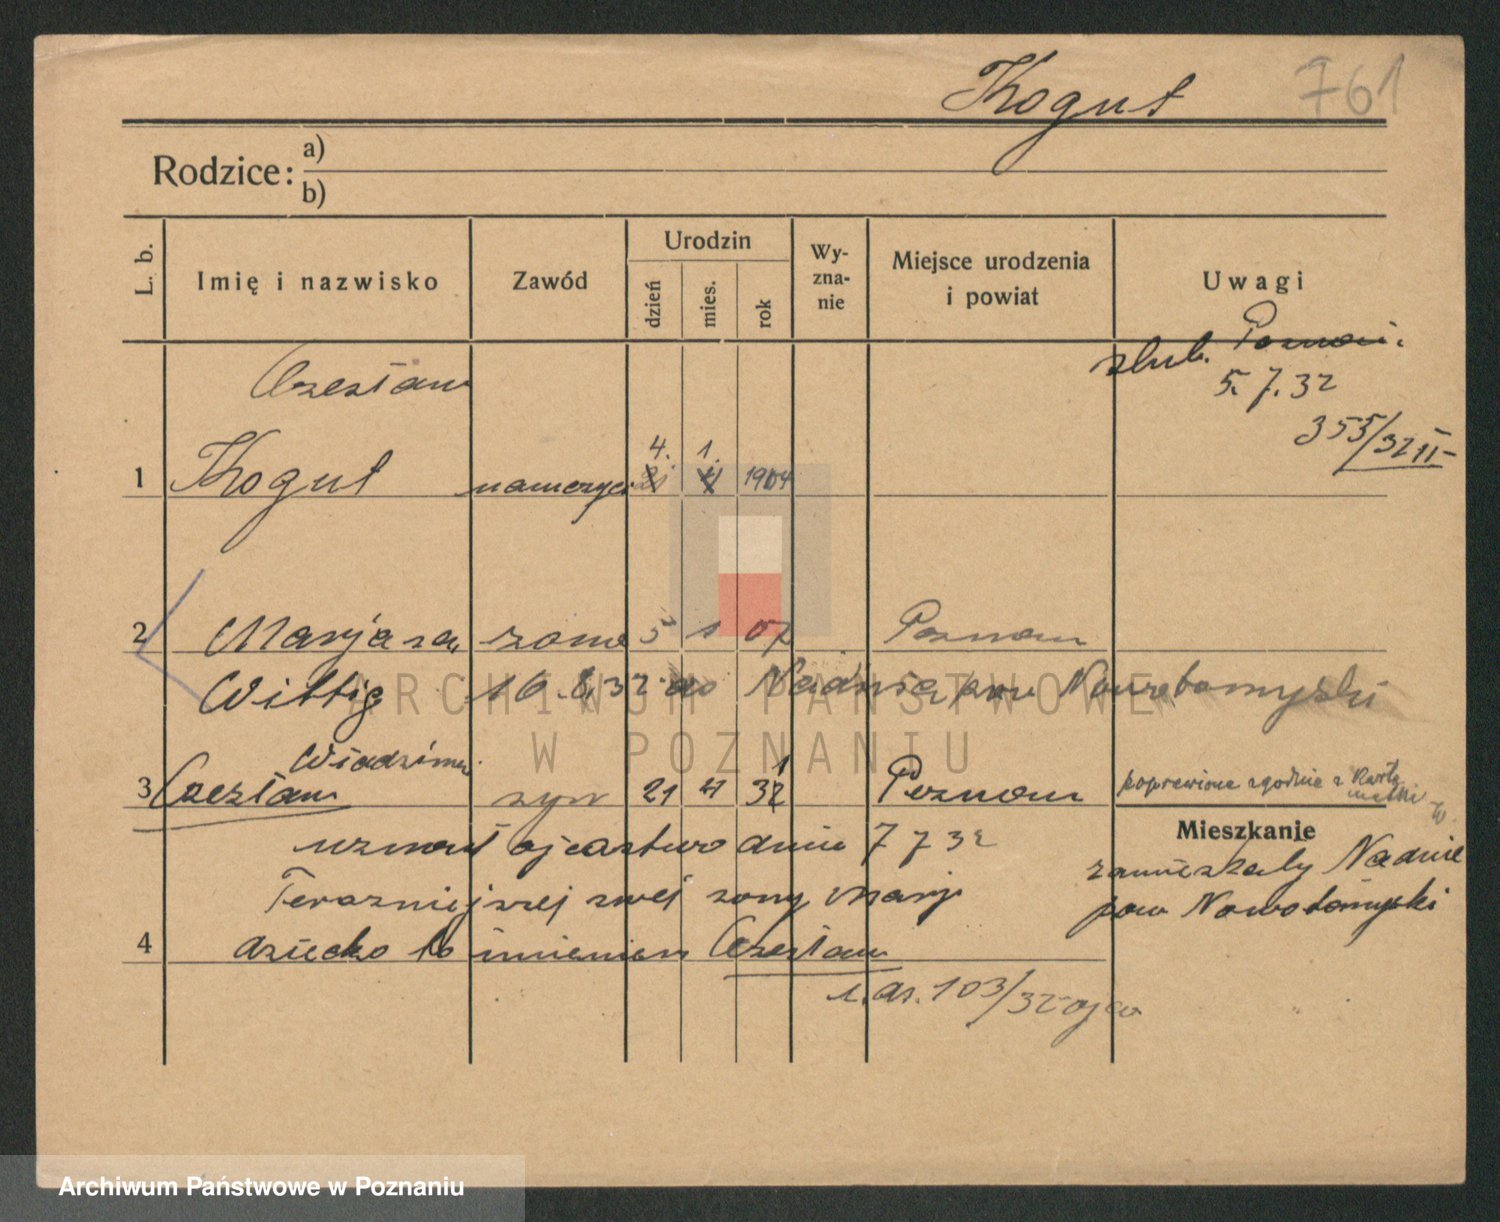 Kogut 761
Rodzice: a)
b)
L. b.
Imię i nazwisko
Zawód
Urodzin
dzień
mies.
rok
Wy-
zna-
nie
Miejsce urodzenia
i powiat
Uwagi
ślub. Poznań.
5. 7. 32
355/32 II
Czesław
4. 1.
1 Kogut 21 4 1904
2 Marja za żona 5 1 07 Poznań
Wittig 16.8.32 do Nądnia, pow. Nowotomyski
Włodzimierz 1
3 Czesław syn 21 4 32 Poznań poprawione zgodnie z kartą
matki
uznał ojcostwo dnia 7 7 32
Mieszkanie
zamieszkały Nądnie
Terazniejszej swej żony Marji
pow Nowotomyski
4 dziecko to imieniem Czesław
103/32 ojca
ARCHIWUM PAŃSTWOWE
W POZNANIU
Archiwum Państwowe w Poznaniu